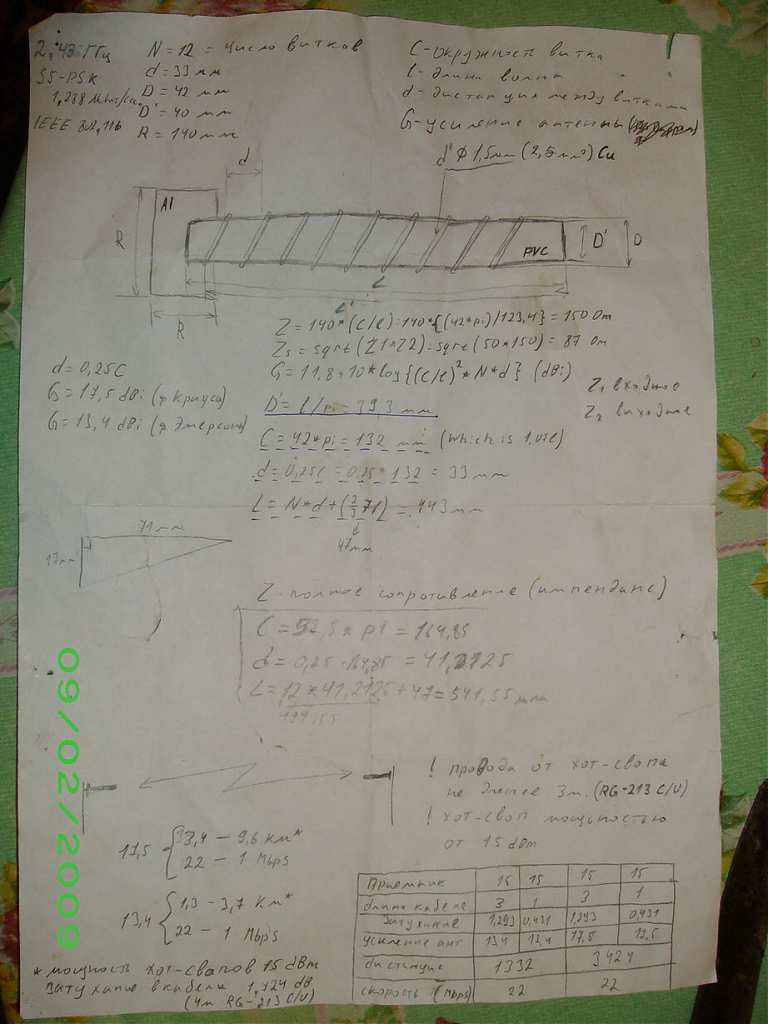 2,43 ГГц
SS-PSK
IEEE 802,11b
N = 12 = число витков
d = 33 мм
D = 42 мм
D' = 40 мм
R = 140 мм
C - окружность витка
l - длина волны
d - дистанция между витками
G - усиление антенны
d' ϕ 1,5мм (2,5мм²) Cu
d
Al
R
PVC
D'
D
L
L'
R
Z = 140*(C/l)=140*{(42*pi)/123,4} = 150 Om
Zs = sqrt(Z1*Z2)=sqrt(50*150) = 87 Om
G = 11,8+10*log{(C/l)²*N*d} (dBi)
Z1 входное
Z2 выходное
d = 0,25C
G = 17,5 dBi (ф Крауса)
G = 13,4 dBi (ф Эмерсона)
D' = l/pi = 39,3 мм
C = 42*pi = 132 мм (which is 1,07l)
d = 0,25C = 0,25*132 = 33 мм
L = N*d+(2/3 71) = 443 мм
47мм
71 мм
17мм
Z - полное сопротивление (импенданс)
C = 52,5 * pi = 164,85
d = 0,25*164,85 = 41,2125
L = 12*41,2125+47=541,55 мм
494,55
09/02/2009
! провода от хот-свапа
не длинее 3м. (RG-213 C/U)
! хот-свап мощностью
от 15 dBm
- 9,6 Км*
22 - 1 Mbps
13,4
1,3 - 3,7 Км*
22 - 1 Mbps
Приемник 15 15 15 15
длина кабеля 3 1 3 1
Затухание 1,293 0,431 1,293 0,431
усиление ант 13,4 13,4 17,5 17,5
дистанция 1332 3424
скорость (Mbps) 22 22
* мощность хот-свапов 15 dBm
затухание в кабели 1,724 dB
(4м RG-213 C/U)